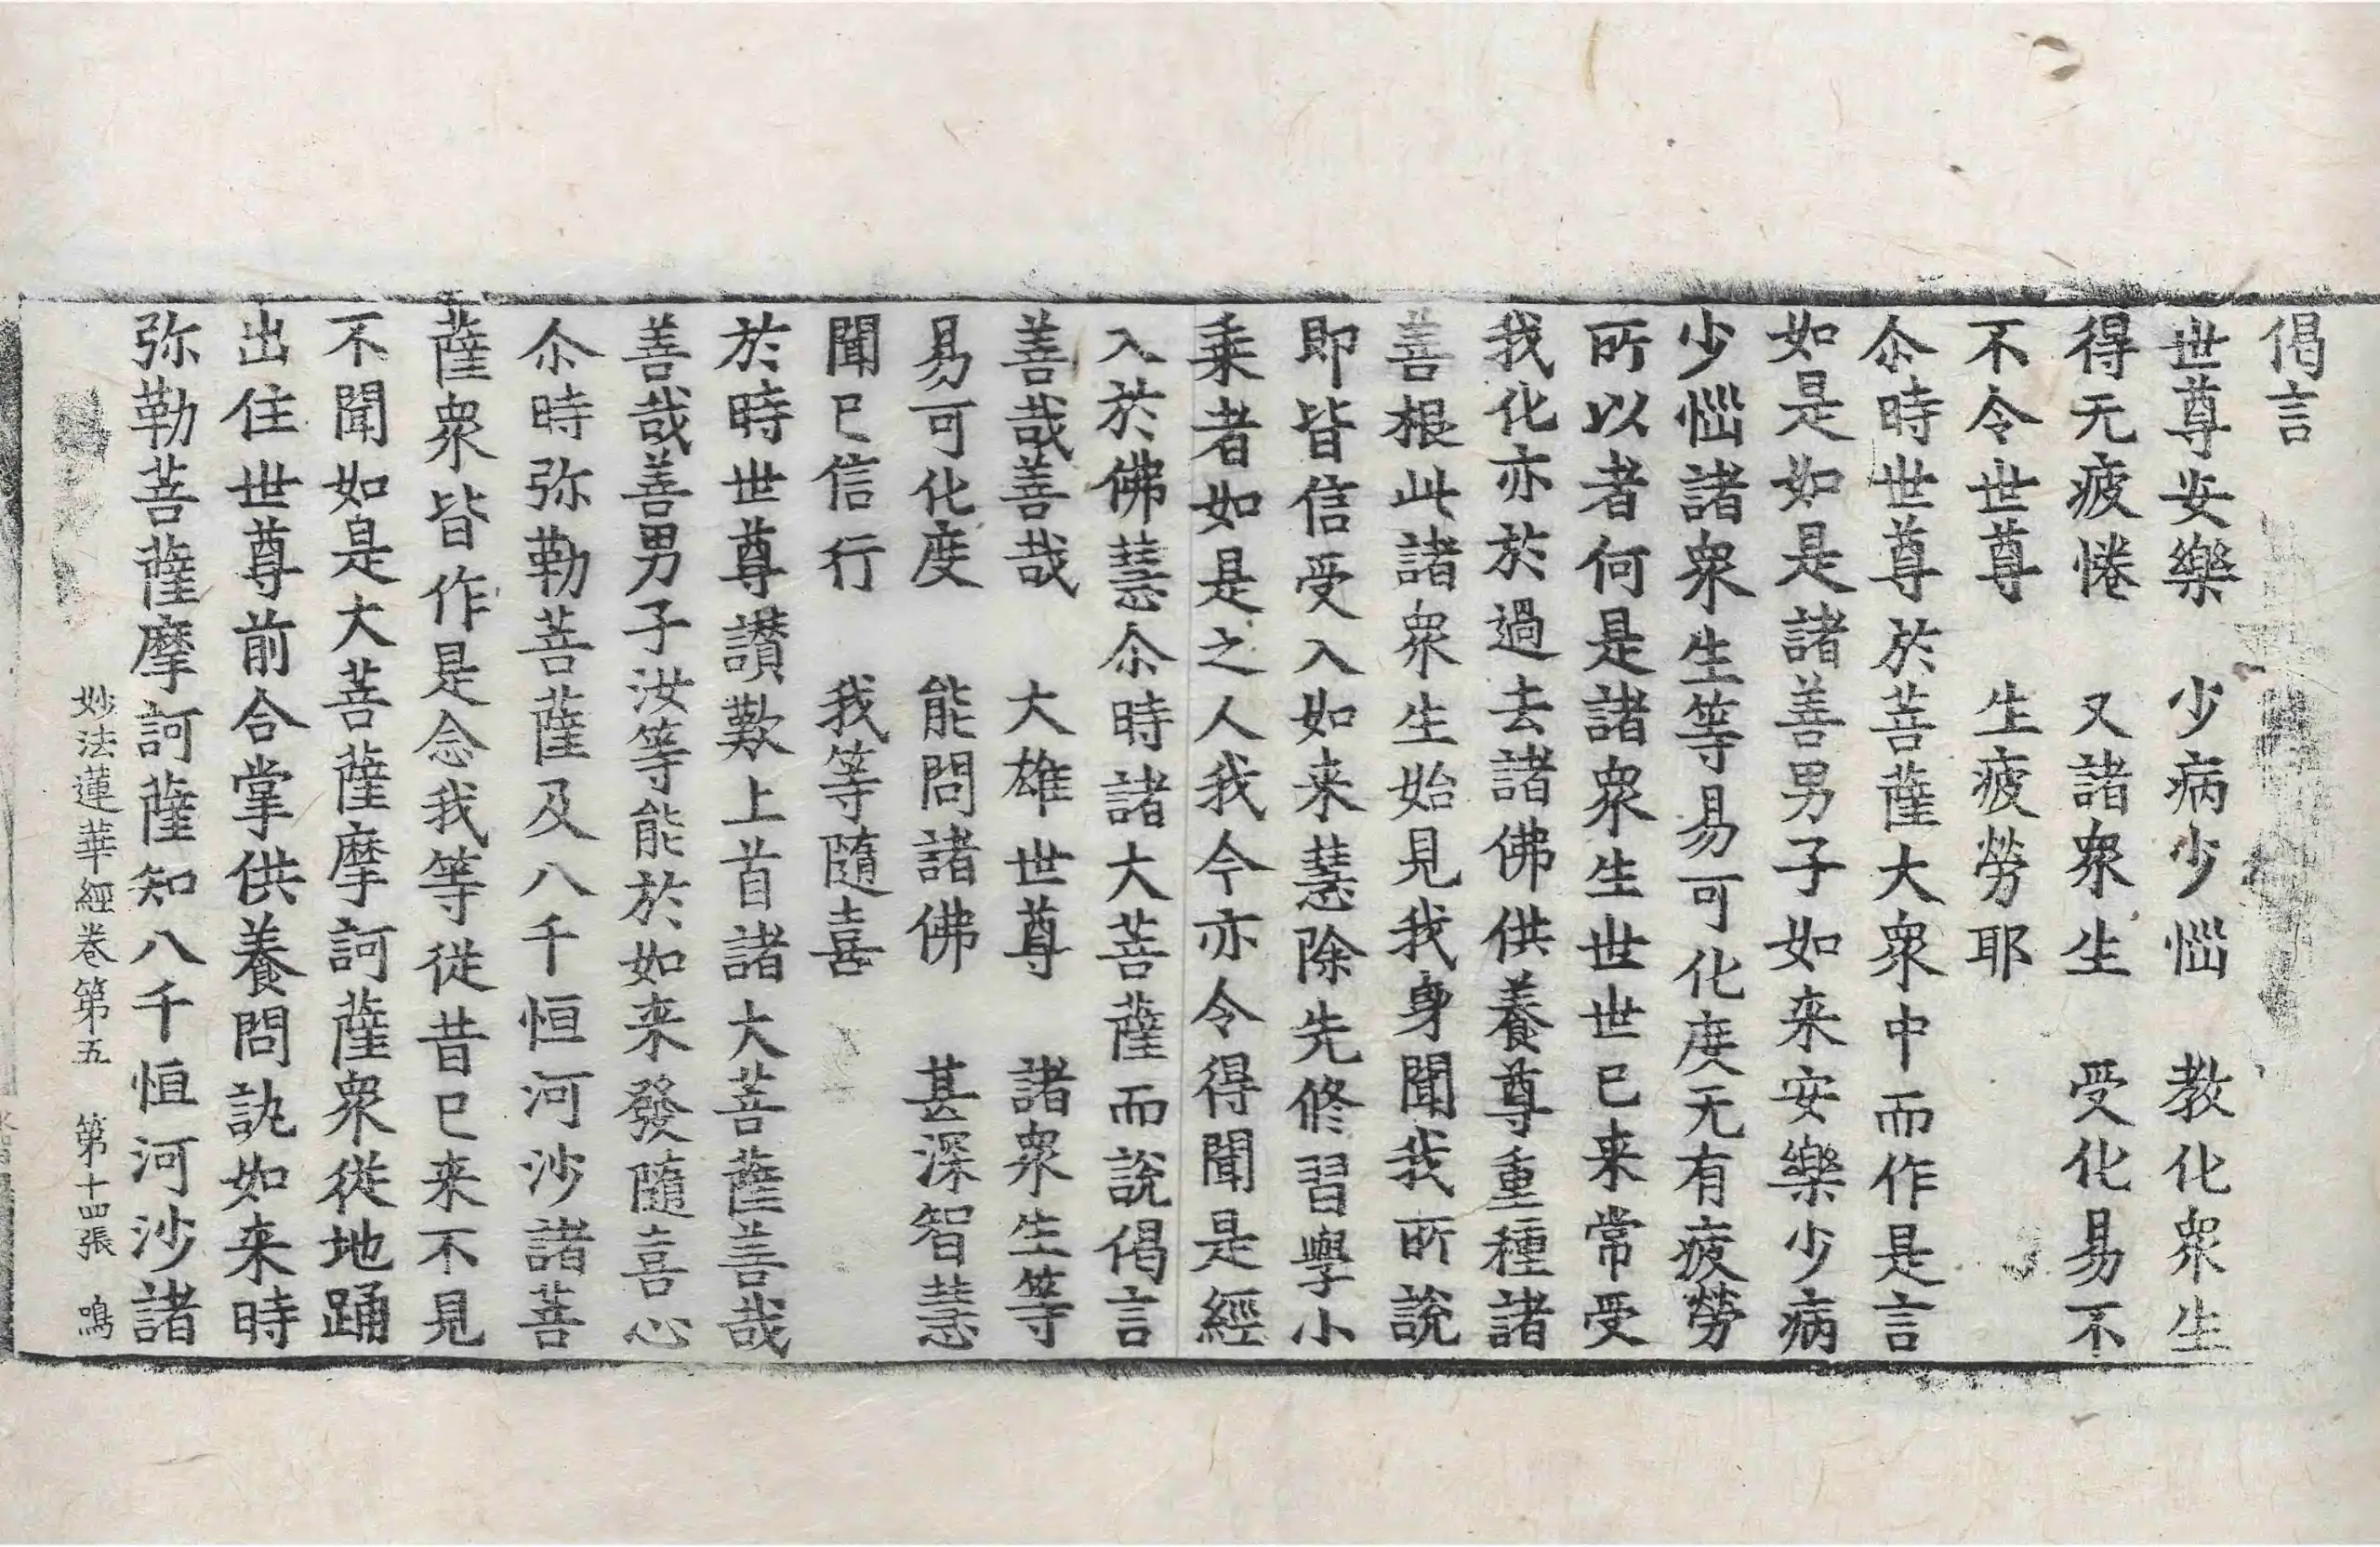 偈言
世尊安樂　少病少惱　教化衆生
得无疲惓　又諸衆生　受化易不
不令世尊　生疲勞耶
尒時世尊於菩薩大衆中而作是言
如是如是諸善男子如来安樂少病
少惱諸衆生等易可化度无有疲勞
所以者何是諸衆生世世已来常受
我化亦於過去諸佛供養尊重種諸
善根此諸衆生始見我身聞我所說
即皆信受入如来慧除先修習學小
乗者如是之人我今亦令得聞是經
入於佛慧尒時諸大菩薩而說偈言
善哉善哉　大雄世尊　諸衆生等
易可化度　能問諸佛　甚深智慧
聞已信行　我等隨喜
於時世尊讃歎上首諸大菩薩善哉
善哉善男子汝等能於如来發隨喜心
尒時弥勒菩薩及八千恒河沙諸菩
薩衆皆作是念我等從昔已来不見
不聞如是大菩薩摩訶薩衆從地踊
出住世尊前合掌供養問訊如来時
弥勒菩薩摩訶薩知八千恒河沙諸
妙法蓮華經卷第五　第十四張　鳴